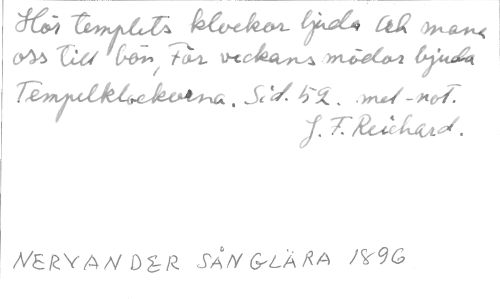 Hör templets klockor ljuda och mana
oss till bön, För veckans mödor bjuda
Tempelklockorna. Sid. 52. mel-not.
J. F. Reichard.
NERVANDER SÅNGLÄRA 1896